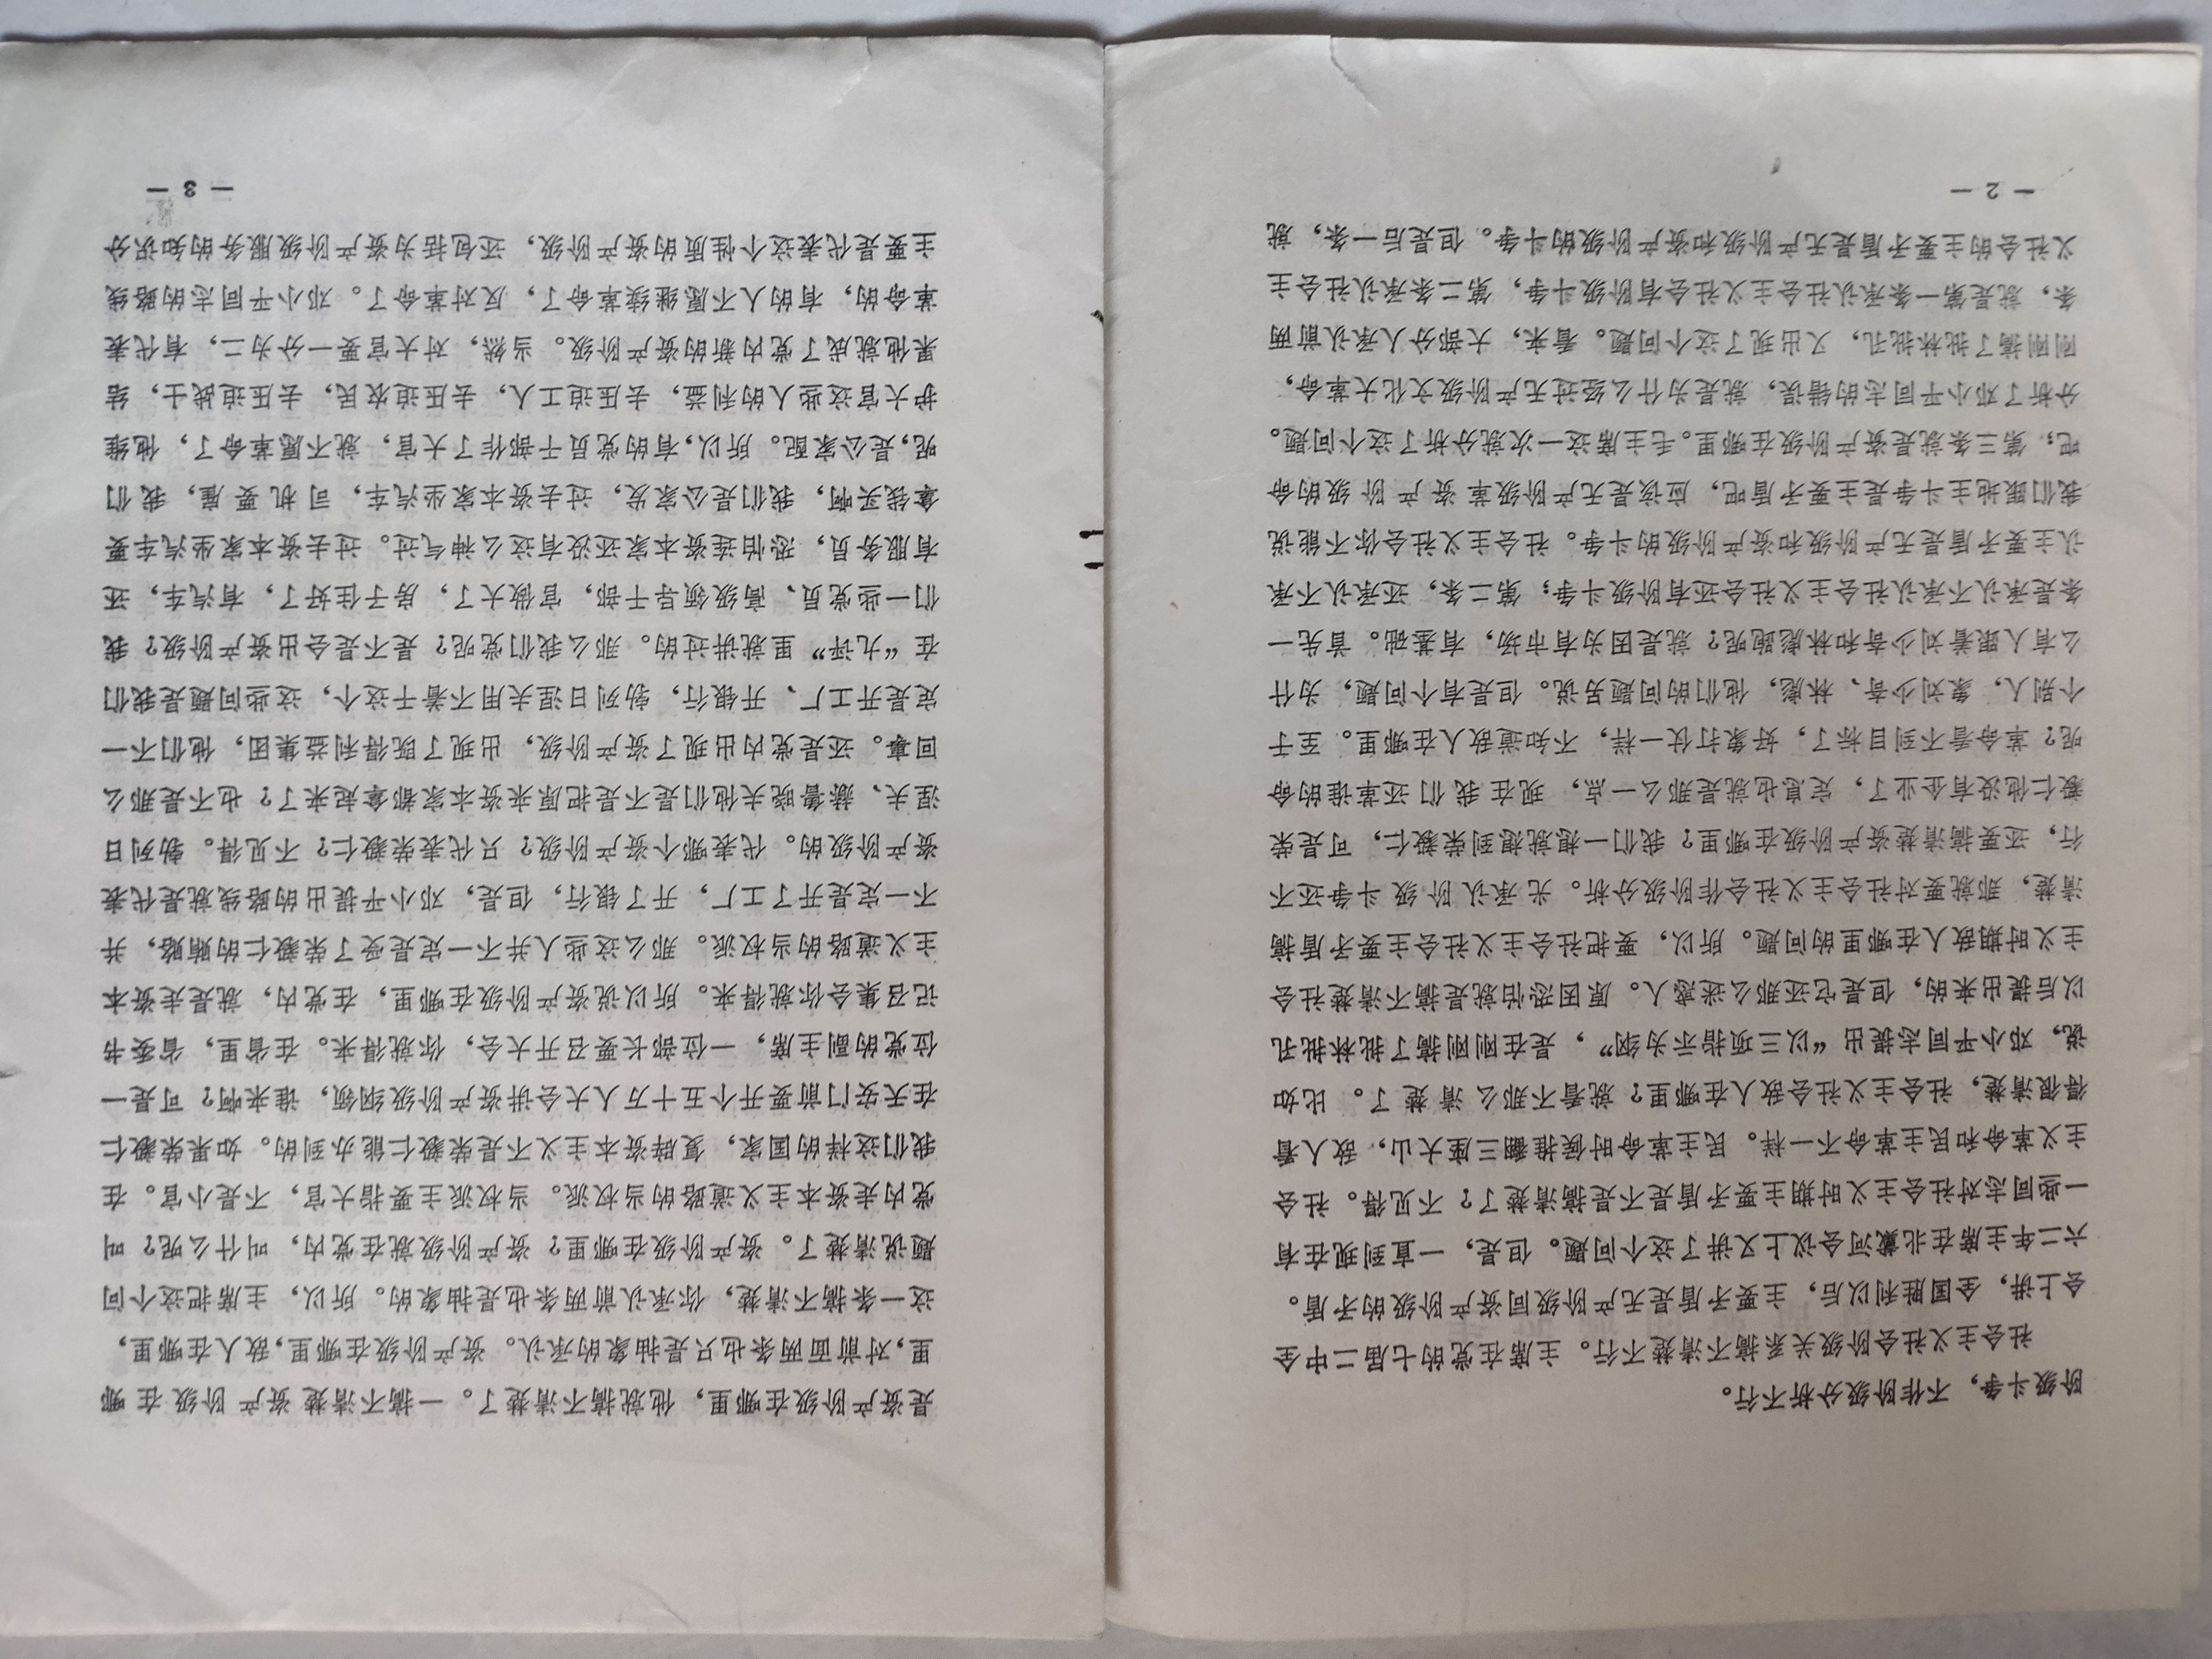 阶级斗争，不作阶级分析不行。
社会主义社会阶级关系搞不清楚不行。主席在党的七届二中全
会上讲，全国胜利以后，主要矛盾是无产阶级同资产阶级的矛盾。
六二年主席在北戴河会议上又讲了这个问题。但是，一直到现在有
一些同志对社会主义时期主要矛盾是不是搞清楚了？不见得。社会
主义革命和民主革命不一样。民主革命时候推翻三座大山，敌人看
得很清楚，社会主义社会敌人在哪里？就看不那么清楚了。比如
说，邓小平同志提出“以三项指示为纲”，是在刚刚搞了批林批孔
以后提出来的，但是它还那么迷惑人。原因恐怕就是搞不清楚社会
主义时期敌人在哪里的问题。所以，要把社会主义社会主要矛盾搞
清楚，那就要对社会主义社会作阶级分析。光承认阶级斗争还不
行，还要搞清楚资产阶级在哪里？我们一想就想到荣毅仁，可是荣
毅仁他没有企业了，定息也就是那么一点，现在我们还革谁的命
呢？革命看不到目标了，好象打仗一样，不知道敌人在哪里。至于
个别人，象刘少奇、林彪，他们的问题另说。但是有个问题，为什
么有人跟着刘少奇和林彪跑呢？就是因为有市场，有基础。首先一
条是承认不承认社会主义社会还有阶级斗争；第二条，还承认不承
认主要矛盾是无产阶级和资产阶级的斗争。社会主义社会你不能说
我们跟地主斗争是主要矛盾吧，应该是无产阶级革资产阶级的命
吧，第三条就是资产阶级在哪里。毛主席这一次就分析了这个问题。
分析了邓小平同志的错误，就是为什么经过无产阶级文化大革命，
刚刚搞了批林批孔，又出现了这个问题。看来，大部分人承认前两
条，就是第一条承认社会主义社会有阶级斗争，第二条承认社会主
义社会的主要矛盾是无产阶级和资产阶级的斗争。但是后一条，就
— 2 —
是资产阶级在哪里，他就搞不清楚了。一搞不清楚资产阶级在哪
里，对前面两条也只是抽象的承认。资产阶级在哪里，敌人在哪里，
这一条搞不清楚，你承认前两条也是抽象的。所以，主席把这个问
题说清楚了。资产阶级在哪里？资产阶级就在党内，叫什么呢？叫
党内走资本主义道路的当权派。当权派主要指大官，不是小官。在
我们这样的国家，复辟资本主义不是荣毅仁能办到的。如果荣毅仁
在天安门前要开个五十万人大会讲资产阶级纲领，谁来啊？可是一
位党的副主席，一位部长要召开大会，你就得来。在省里，省委书
记召集会你就得来。所以说资产阶级在哪里，在党内，就是走资本
主义道路的当权派。那么这些人并不一定是受了荣毅仁的贿赂，并
不一定是开了工厂，开了银行，但是，邓小平提出的路线就是代表
资产阶级的。代表哪个资产阶级？只代表荣毅仁？不见得。勃列日
涅夫、赫鲁晓夫他们是不是把原来资本家都拿走来了？也不是那么
回事。还是党内出现了资产阶级，出现了既得利益集团，他们不一
定是开工厂、开银行，勃列日涅夫用不着干这个，这些问题是我们
在“九评”里就讲过的。那么我们党呢？是不是会出资产阶级？我
们一些党员、高级领导干部，官做大了，房子住好了，有汽车，还
有服务员，恐怕连资本家还没有这么神气过。过去资本家坐汽车要
拿钱买啊，我们是公家发，过去资本家坐汽车，司机要雇，我们
呢，是公家配。所以，有的党员干部作了大官，就不愿革命了，他维
护大官这些人的利益，去压迫工人，去压迫农民，去压迫战士，结
果他就成了党内新的资产阶级。当然，对大官要一分为二，有代表
革命的，有的人不愿继续革命了，反对革命了。邓小平同志的路线
主要是代表这个性质的资产阶级，还包括为资产阶级服务的知识分
— 3 —